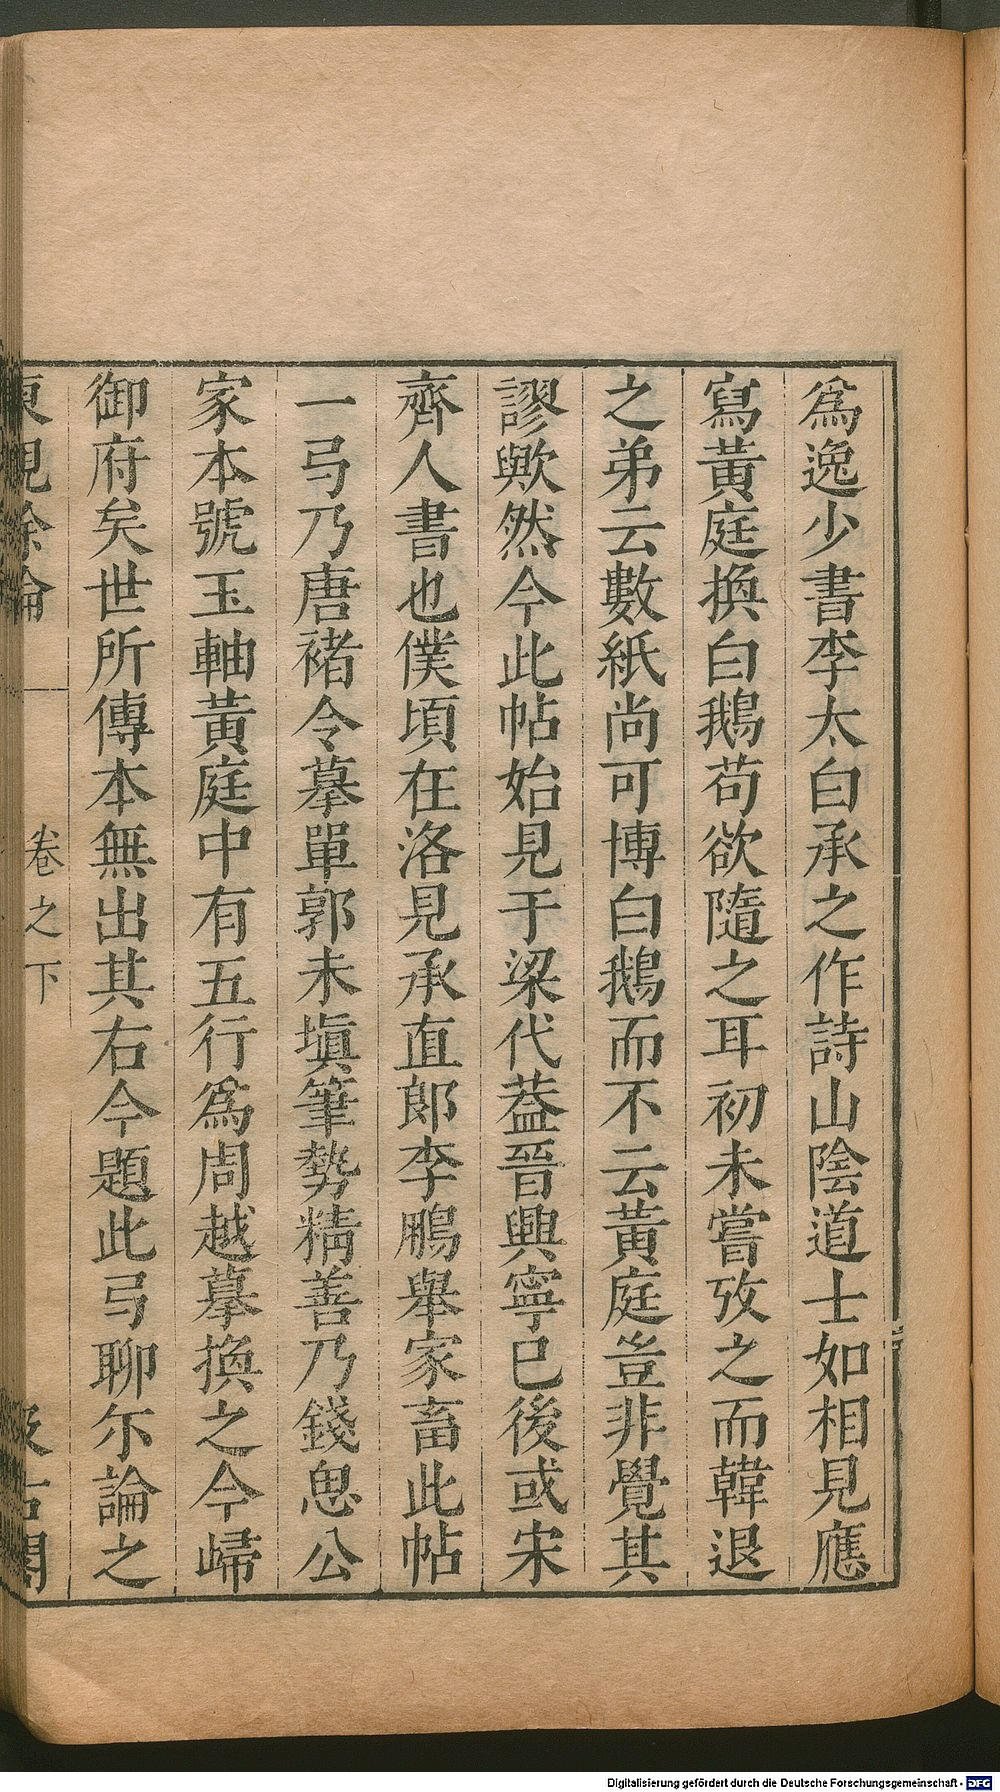 爲逸少書李太白承之作詩山陰道士如相見應
寫黃庭換白鵝苟欲隨之耳初未嘗攷之而韓退
之弟云數紙尚可博白鵝而不云黃庭豈非覺其
謬歟然今此帖始見于梁代葢晉興寧已後或宋
齊人書也僕頃在洛見承直郎李鵬舉家畜此帖
一弓乃唐褚令摹單郭未塡筆勢精善乃錢思公
家本號玉軸黃庭中有五行爲周越摹換之今歸
御府矣世所傳本無出其右今題此弓聊尓論之
東觀餘論
卷之下
汲古閣
Digitalisierung gefördert durch die Deutsche Forschungsgemeinschaft - DFG